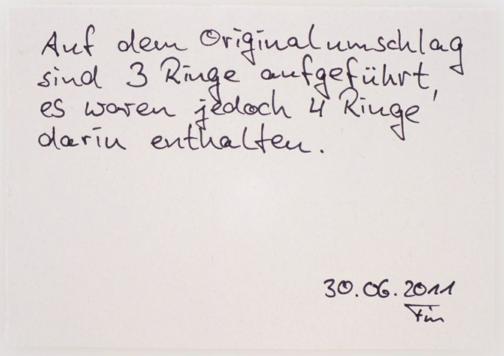 Auf dem Originalumschlag
sind 3 Ringe aufgeführt,
es waren jedoch 4 Ringe
darin enthalten.
30.06.2011